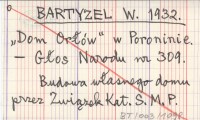 BARTYZEL W. 1932.
„Dom Orłów" w Poroninie.
– Głos Narodu nr 309.
Budowa własnego domu
przez Związek Kat. S. M. P.